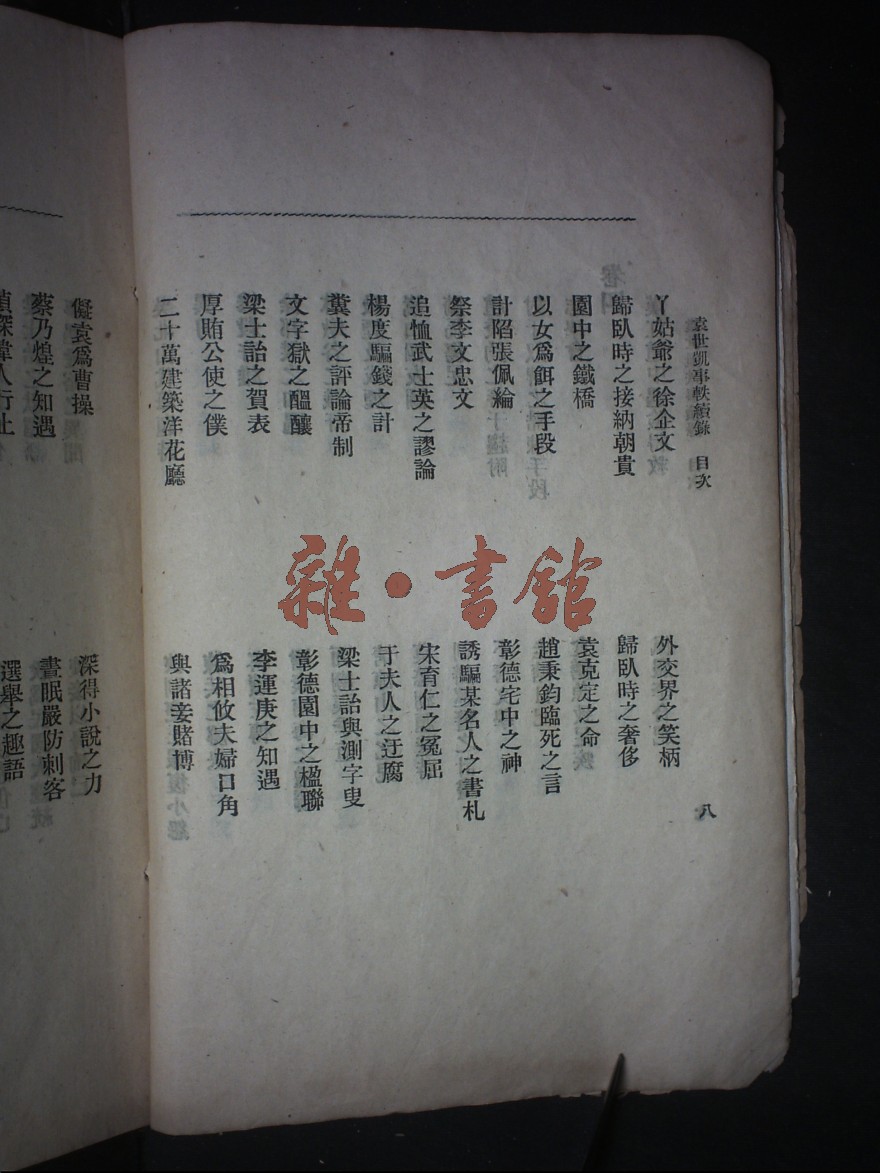 袁世凱事軼續錄　目次
八
丫姑爺之徐企文
外交界之笑柄
歸臥時之接納朝貴
歸臥時之奢侈
園中之鐵橋
袁克定之命
以女爲餌之手段
趙秉鈞臨死之言
計陷張佩綸
彰德宅中之神
祭李文忠文
誘騙某名人之書札
追恤武士英之謬論
宋育仁之冤屈
楊度騙錢之計
于夫人之迂腐
糞夫之評論帝制
梁士詒與測字叟
文字獄之醞釀
彰德園中之楹聯
梁士詒之賀表
李運庚之知遇
厚賄公使之僕
爲相攸夫婦口角
二十萬建築洋花廳
與諸妾賭博
儗袁爲曹操
深得小說之力
蔡乃煌之知遇
晝眠嚴防刺客
偵探偉人行止
選舉之趣語
雜·書館